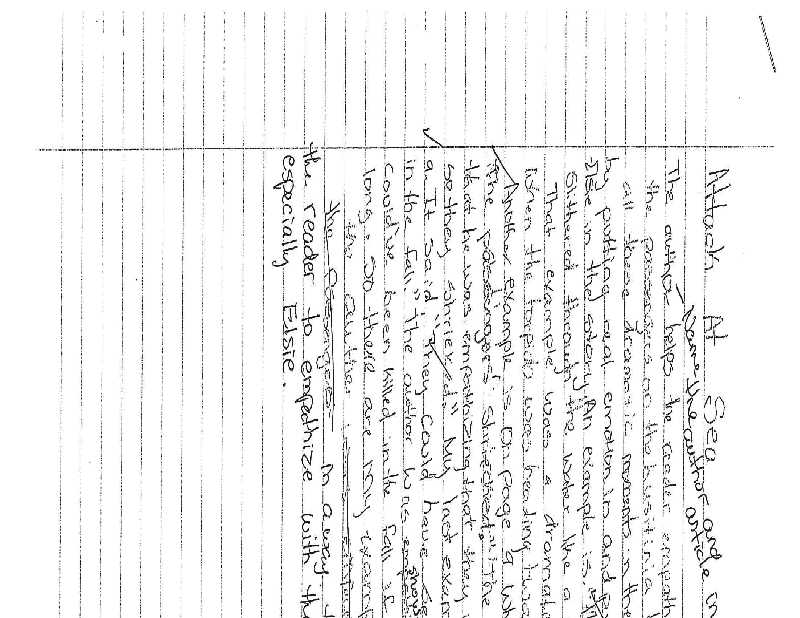 Attack At Sea
Name the author and
article in
The author helps the reader empath
the passengers on the Lusitina
all these dramatic moments in the
by putting real emotion in and
Else in the story. An example is
Slithered through the water like a
That example was a dramatic
when the torpedo was heading
Another example is on page 9 wh
the passengers shrieked. "The
that he was empathizing that they
so they shrieked." My last exam
a. It said "They could have
in the fall." The author was show
could've been killed in the fall if
long. So these are my examp
the author
the Passenger in a way
the reader to empathize with th
especially Elsie.